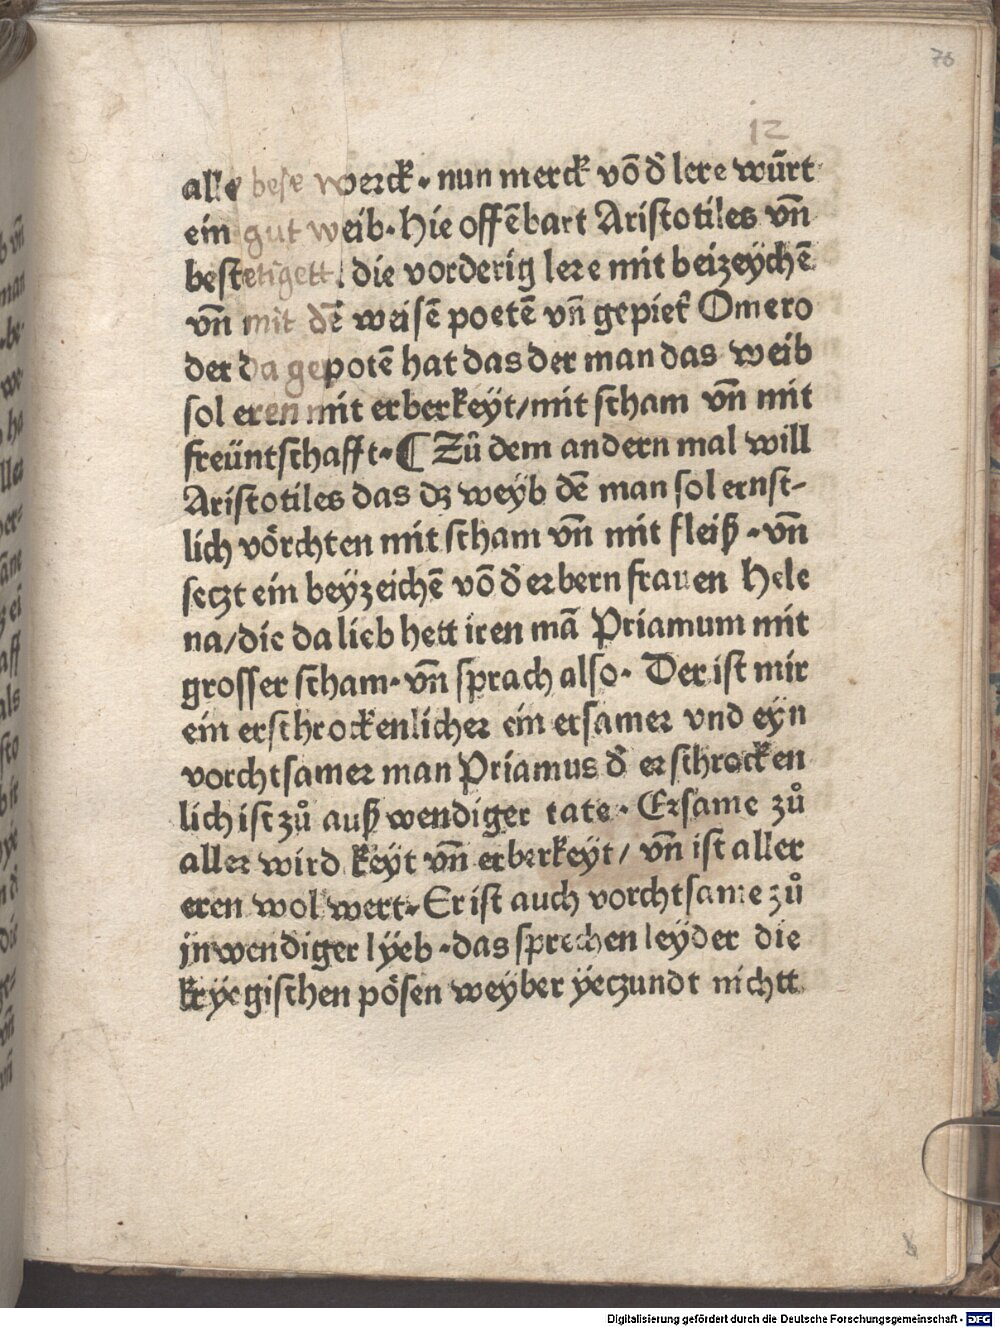 76
12
alle bese werck · nun merck vō d̄ lere wūrt
ein gut weib · Hie offēbart Aristotiles vn̄
bestetigett . die vorderig lere mit beizeychē
vn̄ mit dē weisē poetē vn̄ gepiet̄ Omero
der da gepotē hat das der man das weib
sol eren mit erberkeyt/mit scham vn̄ mit
freüntschafft · ¶ Zů dem andern mal will
Aristotiles das dz weyb dē man sol ernst-
lich vörchten mit scham vn̄ mit fleiß · vn̄
seczt ein beyzeichē vō d̄ erbern frauen Hele
na/die da lieb hett iren mā Priamum mit
grosser scham · vn̄ sprach also · Der ist mir
ein erschrockenlicher ein ersamer vnd eyn
vorchtsamer man Priamus d̄ erschrocken
lich ist zů außwendiger tate · Ersame zů
aller wirdkeyt vn̄ erberkeyt/ vn̄ ist aller
eren wol wert · Er ist auch vorchtsame zů
jnwendiger lÿeb · das sprechen leyder die
krÿegischen pösen weyber ÿeczundt nichtt
Digitalisierung gefördert durch die Deutsche Forschungsgemeinschaft - DFG